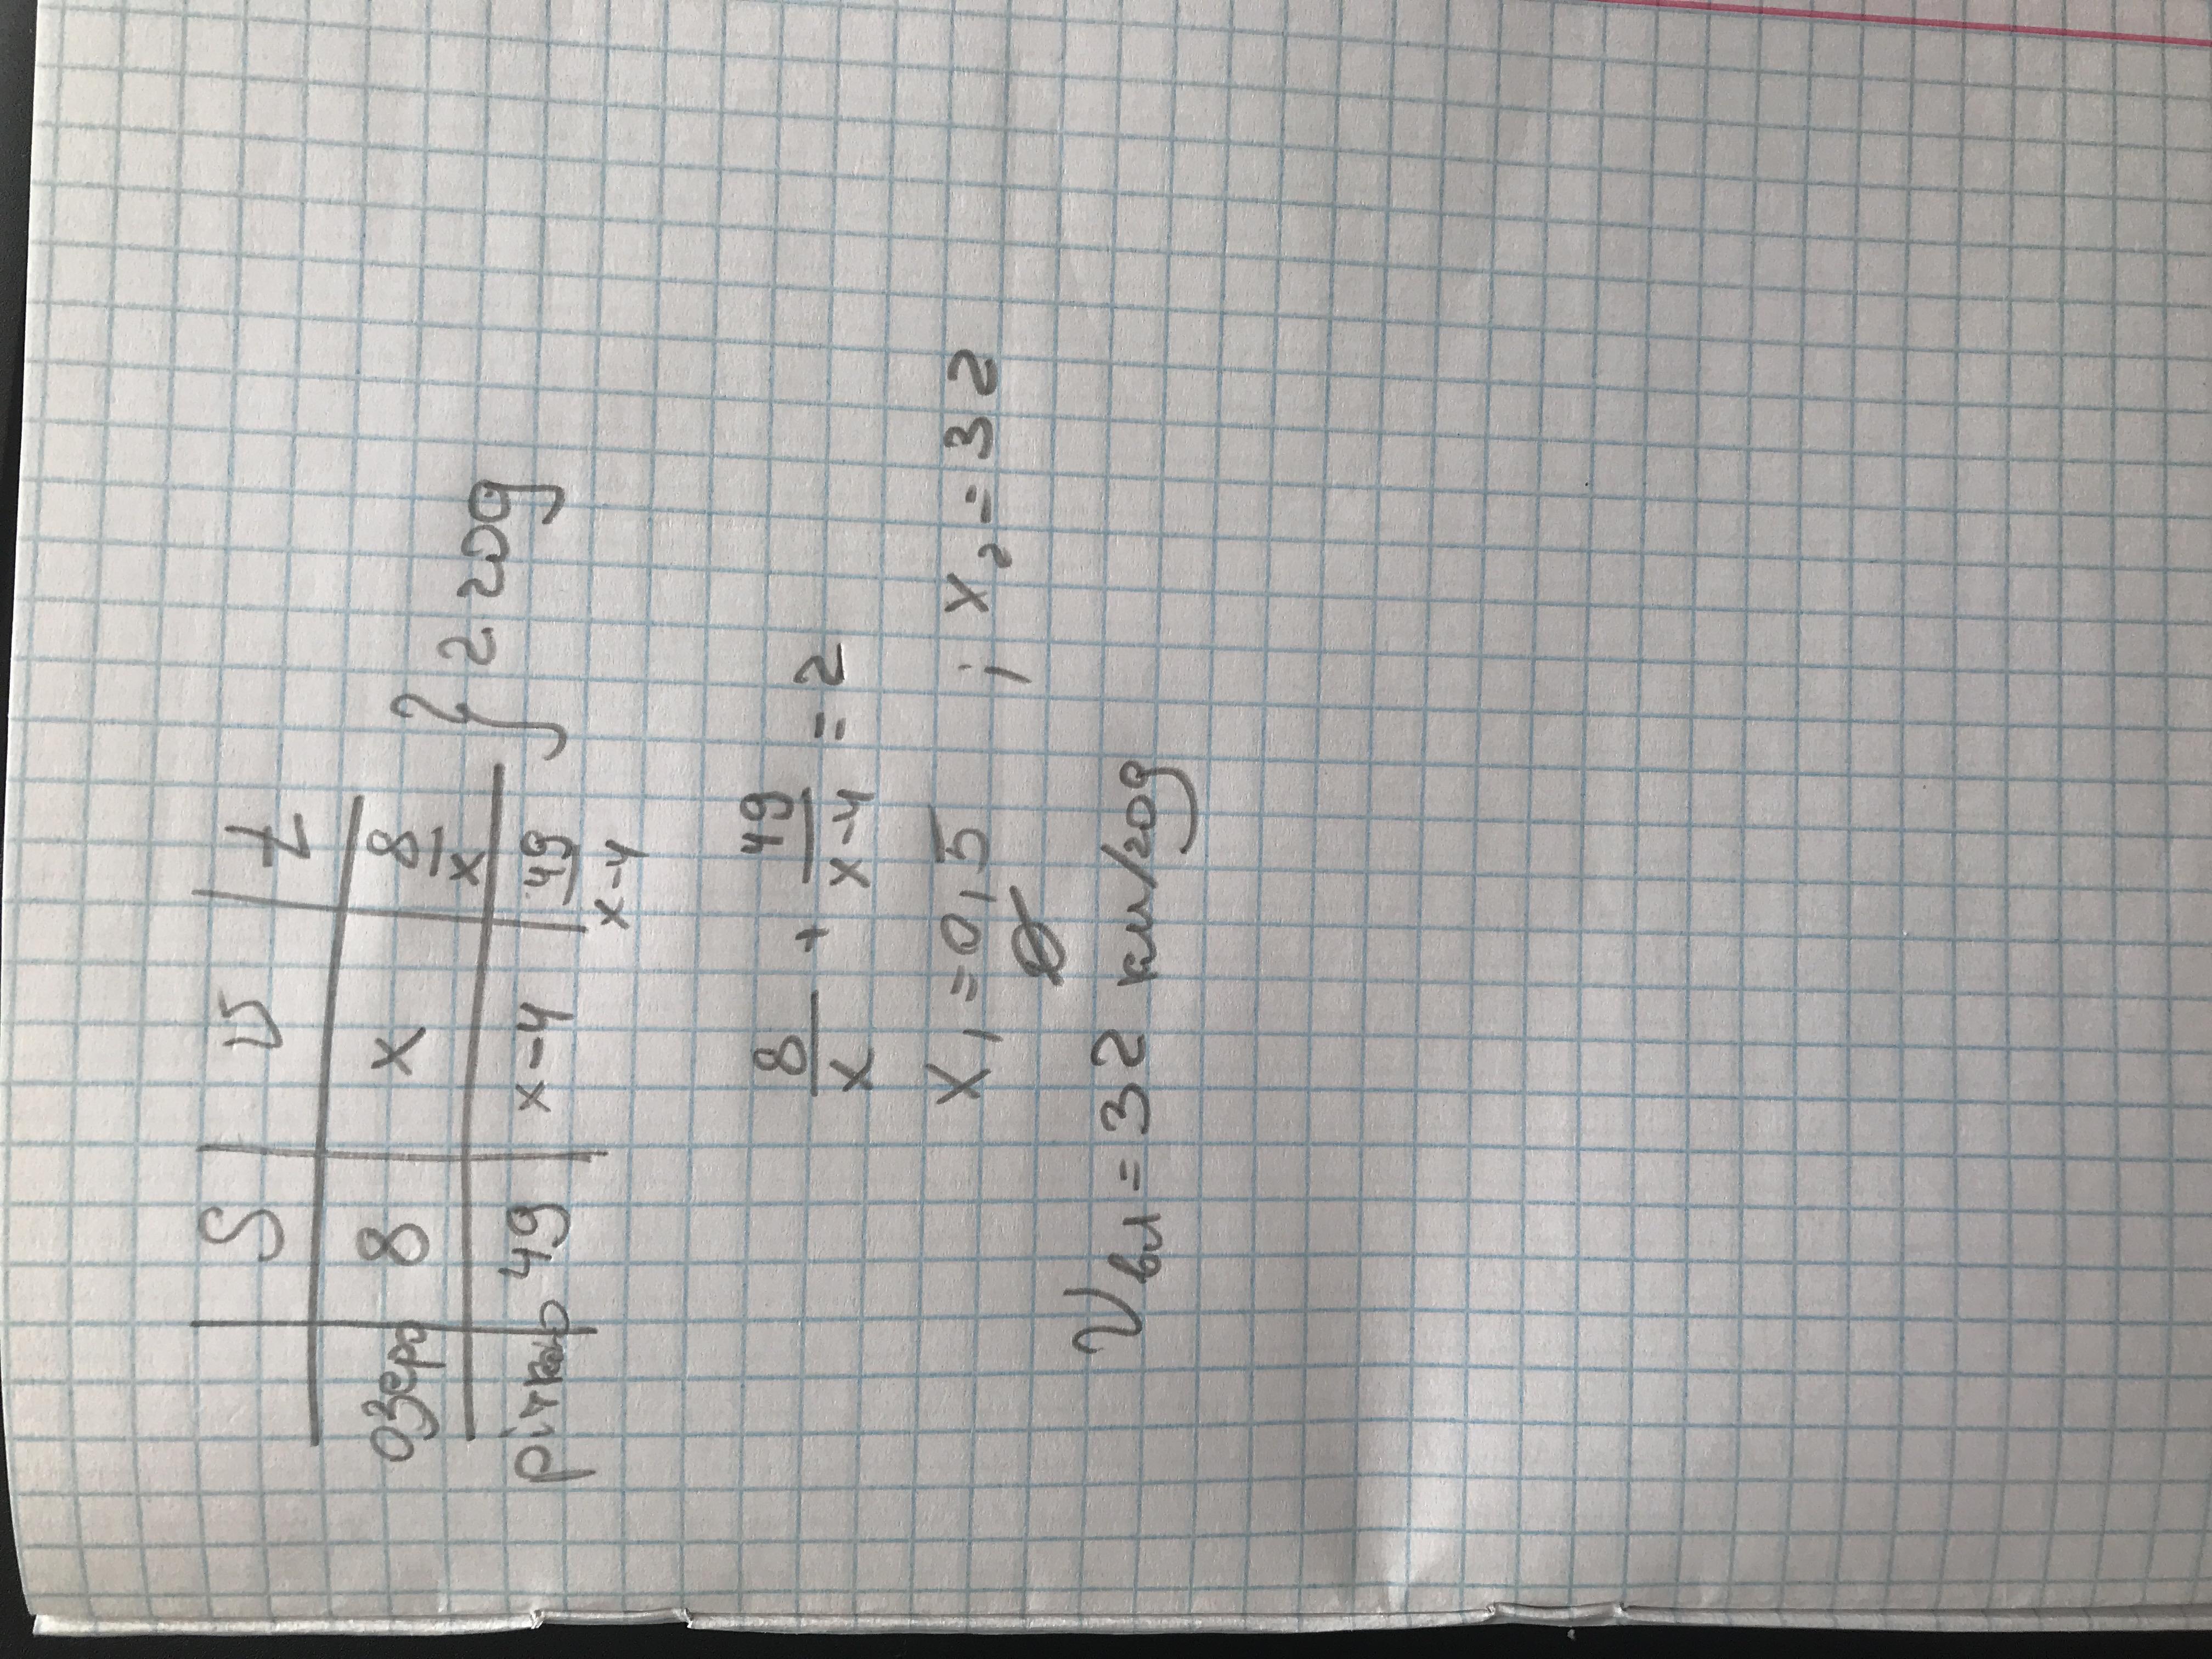 S v t
озеро 8 x 8/x
річкою 49 x-4 49/x-4 } 2 год
8/x + 49/x-4 = 2
x₁ = 0,5 ; x₂ = 32
∅
Vвл = 32 км/год